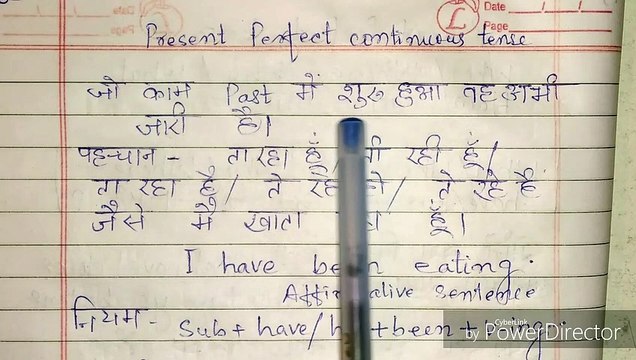 Date
Page
Present Perfect continuous tense
जो काम Past में शुरू हुआ वह अभी
जारी है।
पहचान - ता रहा हूँ/ ती रही हूँ/
ता रहा है/ ते रहे हो/ ते रहे हैं
जैसे मै खाता रहा हूँ।
I have been eating.
Affirmative sentence
नियम- Sub+ have/ +been +
CyberLink
by PowerDirector